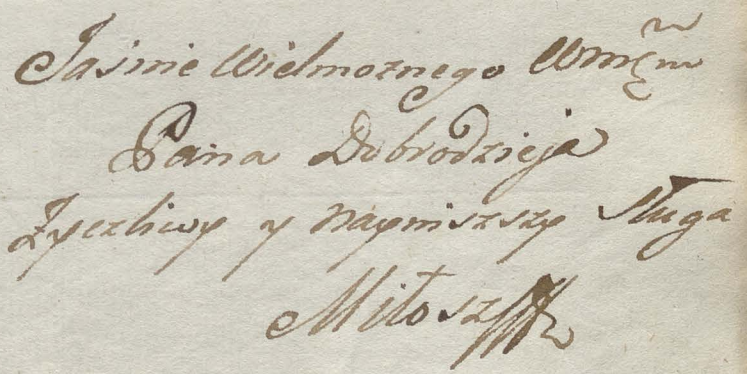 Jaśnie Wielmożnego Wmęm
Pana Dobrodzieja
Życzliwy y Nayniszszy sługa
Miłosz